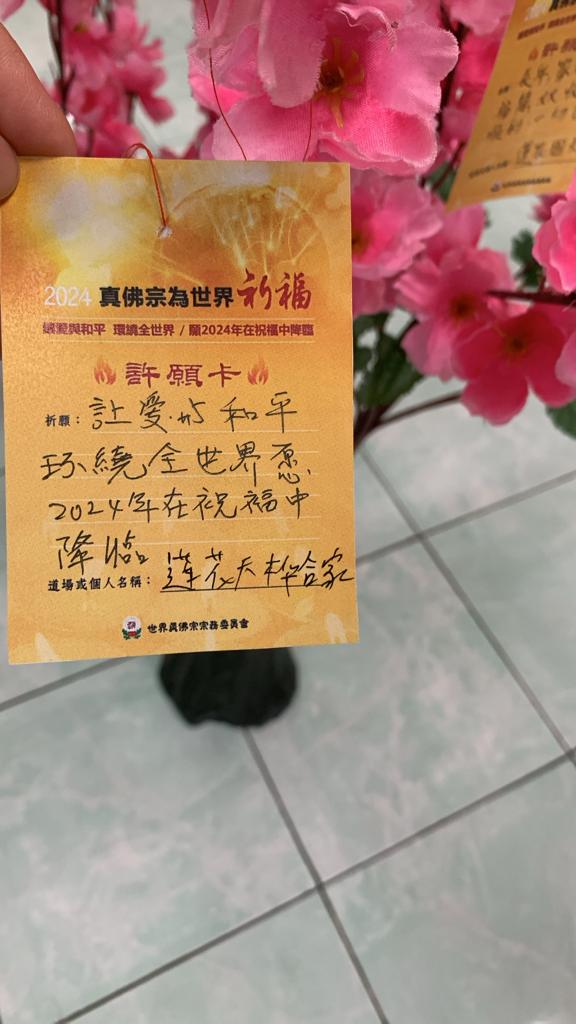 2024 真佛宗為世界祈福
讓愛與和平 環繞全世界 / 願2024年在祝福中降臨
許願卡
祈願：让愛与和平
环繞全世界愿
2024年在祝福中
降临
道場或個人名稱：蓮花天桦合家
世界真佛宗宗務委員會
許願